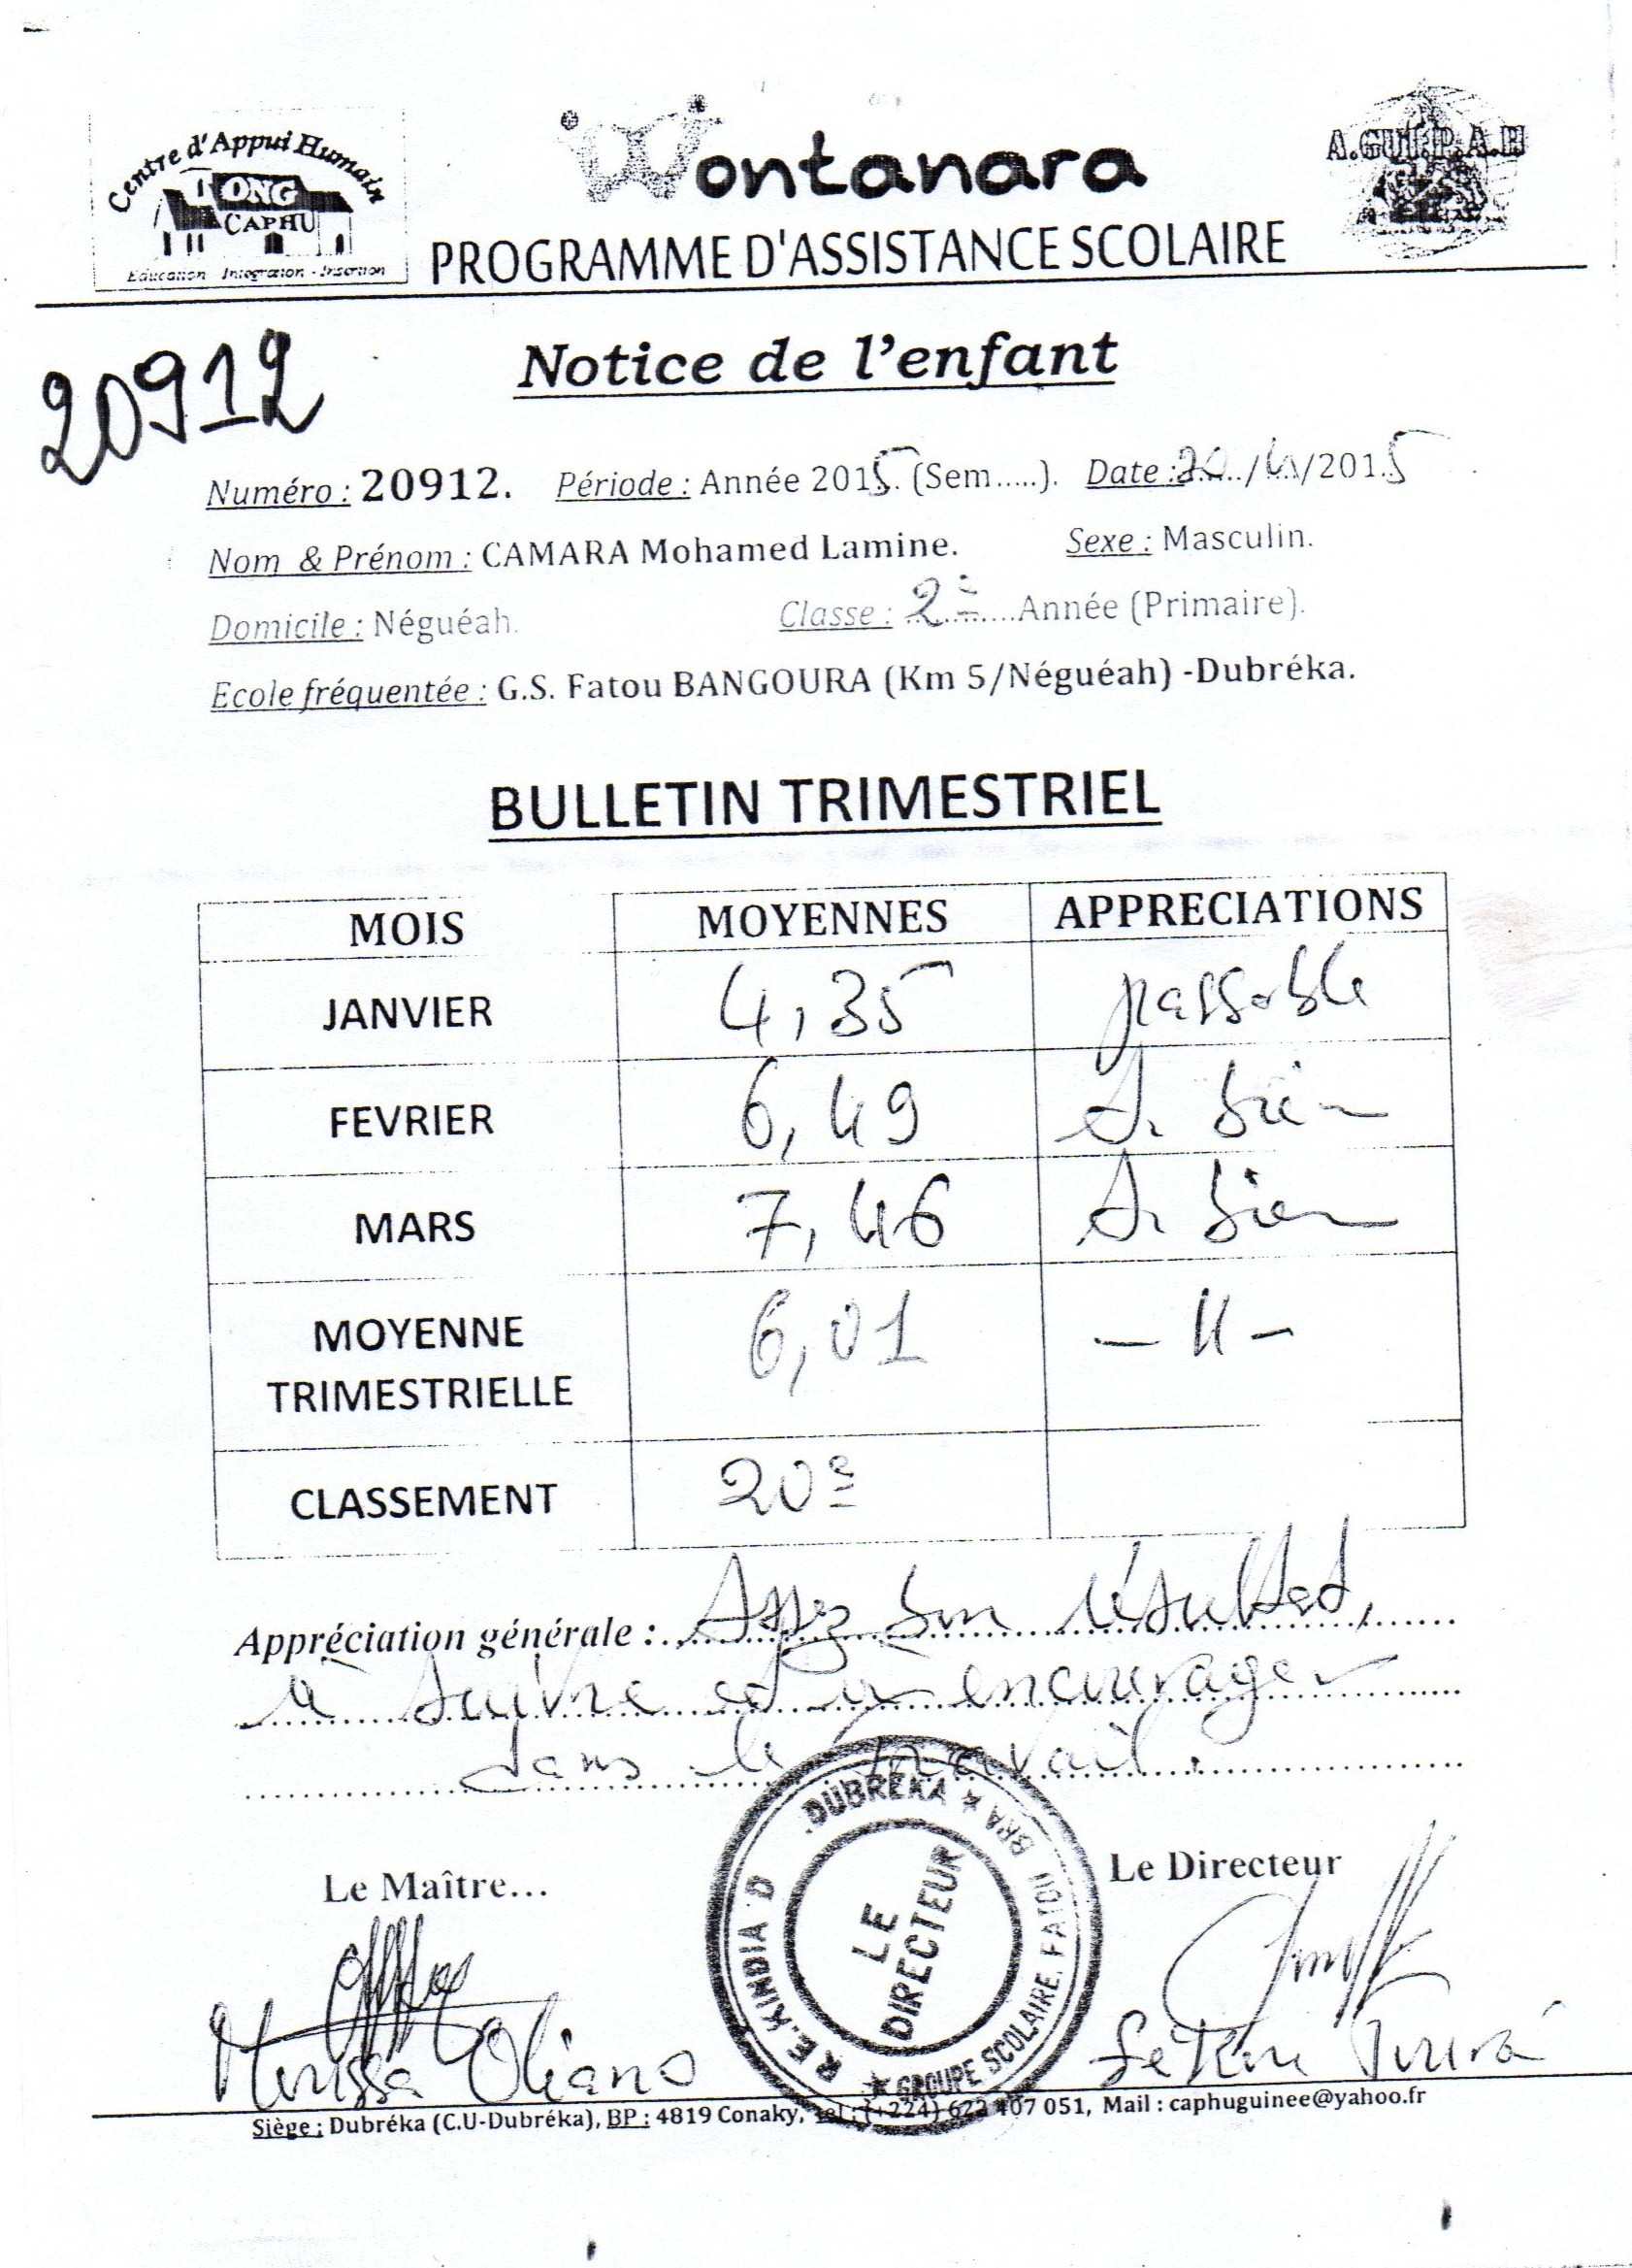 Centre d'Appui Humain
ONG
CAPHU
Education - Integration - Insertion
Wontanara
A.GUI.P.A.H
PROGRAMME D'ASSISTANCE SCOLAIRE
20912
Notice de l'enfant
Numéro : 20912. Période : Année 2015. (Sem.....). Date : 20..../4/2015
Nom & Prénom : CAMARA Mohamed Lamine. Sexe : Masculin.
Domicile : Néguéah. Classe : 2e Année (Primaire).
Ecole fréquentée : G.S. Fatou BANGOURA (Km 5/Néguéah) -Dubréka.
BULLETIN TRIMESTRIEL
MOIS MOYENNES APPRECIATIONS
JANVIER 4,35 passable
FEVRIER 6,49 A. bien
MARS 7,46 A. bien
MOYENNE TRIMESTRIELLE 6,01 — 11 —
CLASSEMENT 20e
Appréciation générale : Assez bon résultat,
à suivre et à encourager
dans le travail.
Le Maître... Le Directeur
DUBREKA ★ BRA
RE.KINDIA D
LE DIRECTEUR
★ GROUPE SCOLAIRE. FATOU
Siège : Dubréka (C.U-Dubréka), BP : 4819 Conaky, Tel : (+224) 622 407 051, Mail : caphuguinee@yahoo.fr